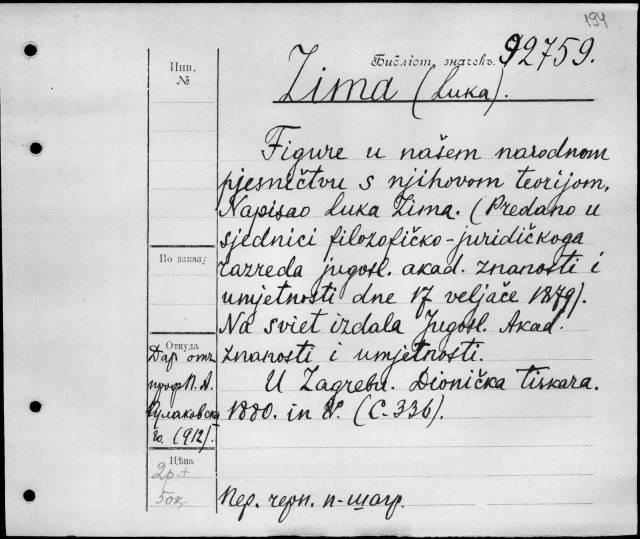 194
Библіот. значекъ. 92759.
Инв.
№
Zima (Luka).
Figure u našem narodnom
pjesničtvu s njihovom teorijom.
Napisao Luka Zima. (Predano u
sjednici filozofičko-juridičkoga
razreda jugosl. akad. znanosti i
umjetnosti dne 17 veljače 1879).
Na sviet izdala Jugosl. Akad.
znanosti i umjetnosti.
U Zagrebu. Dionička tiskara.
1880. in 8°. (C. 336).
По заказу
Откуда
Даръ отъ
проф. П. А.
Кулаковска
го. (912).
Цѣна
2р. +
50к.
Пер. черн. п-шагр.